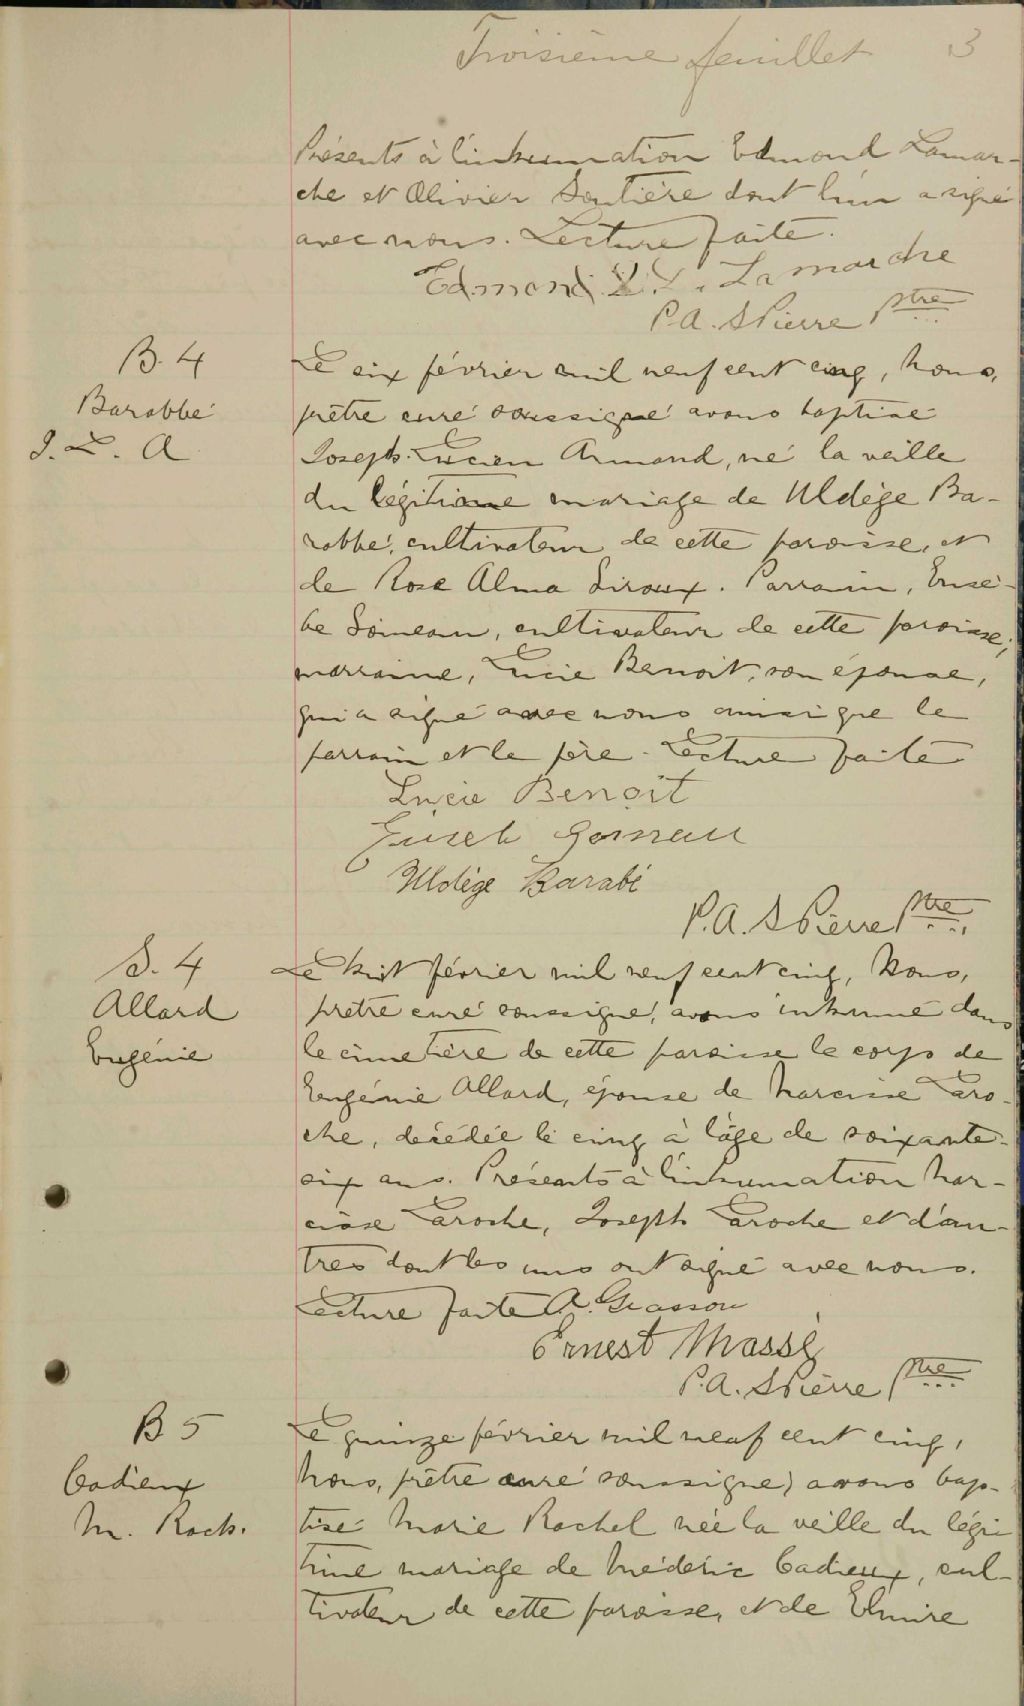 Troisième feuillet 3
Présents à l'inhumation Edmond Lamar-
che et Olivier Soutière dont l'un a signé
avec nous. Lecture faite.
Edmond Lamarche
P.A. S Pierre Ptre
B. 4
Barabbé
J. L. A
Le six février mil neuf cent cinq, Nous,
prêtre curé soussigné avons baptisé
Joseph Lucien Armand, né la veille
du légitime mariage de Uldège Ba-
rabbé, cultivateur de cette paroisse, et
de Rose Alma Siroux. Parrain, Eusè-
be Goineau, cultivateur de cette paroisse;
marraine, Lucie Benoit, son épouse,
qui a signé avec nous ainsi que le
parrain et le père. Lecture faite
Lucie Benoit
Euseb
Uldège Barabé
P.A. S Pierre Ptre
S. 4
Allard
Eugénie
Le huit février mil neuf cent cinq, Nous,
prêtre curé soussigné, avons inhumé dans
le cimetière de cette paroisse le corps de
Eugénie Allard, épouse de Narcisse Laro-
che, décédée le cinq à l'âge de soixante-
six ans. Présents à l'inhumation Nar-
cisse Laroche, Joseph Laroche et d'au-
tres dont les uns ont signé avec nous.
Lecture faite A. Grasson
Ernest Massé
P.A. S Pierre Ptre
B 5
Cadieux
M. Rach.
Le quinze février mil neuf cent cinq,
Nous, prêtre curé soussigné, avons bap-
tisé Marie Rachel née la veille du légi
time mariage de Médéric Cadieux, cul-
tivateur de cette paroisse, et de Elmire